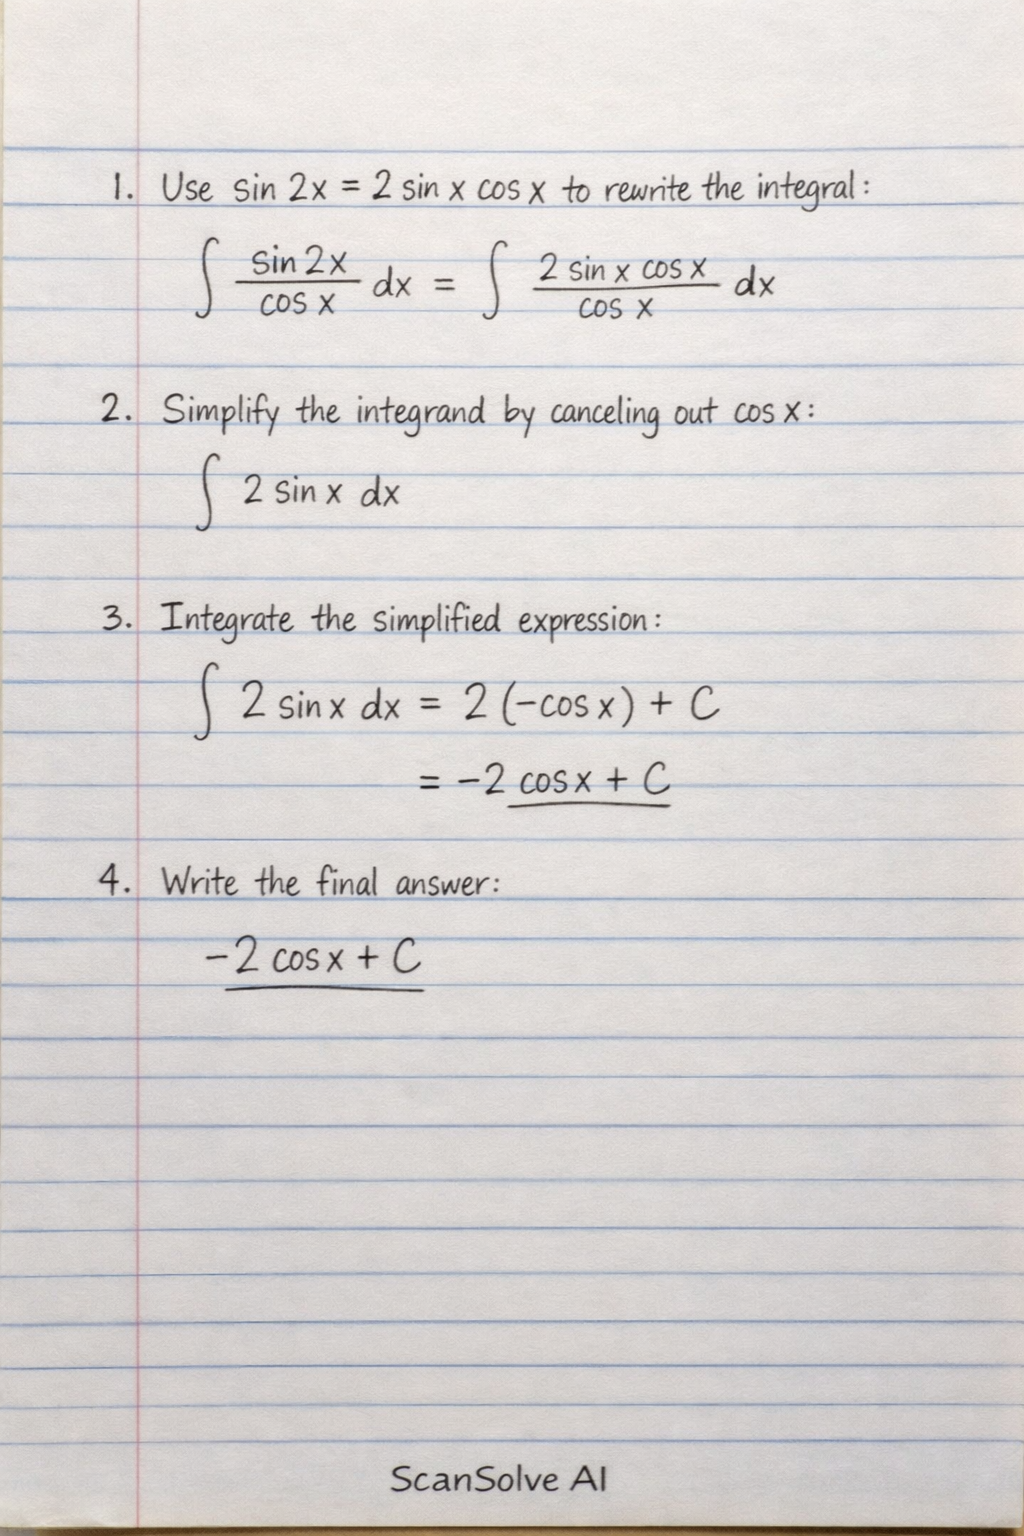 1. Use sin 2x = 2 sin x cos x to rewrite the integral:
∫ sin 2x / cos x dx = ∫ 2 sin x cos x / cos x dx
2. Simplify the integrand by canceling out cos x:
∫ 2 sin x dx
3. Integrate the simplified expression:
∫ 2 sin x dx = 2 (-cos x) + C
= -2 cos x + C
4. Write the final answer:
-2 cos x + C
ScanSolve AI